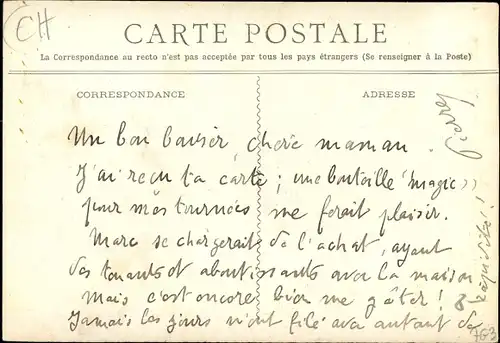 CH
CARTE POSTALE
La Correspondance au recto n'est pas acceptée par tous les pays étrangers (Se renseigner à la Poste)
CORRESPONDANCE
ADRESSE
Un bon baiser, chère maman.
J'ai reçu ta carte ; une bouteille "magic"
pour mes tournées me ferait plaisir.
Marc se chargerait de l'achat, ayant
des tenants et aboutissants avec la maison
Mais c'est encore bien me gâter !
Jamais les jours n'ont filé avec autant de
rapidité !
Pierre
763